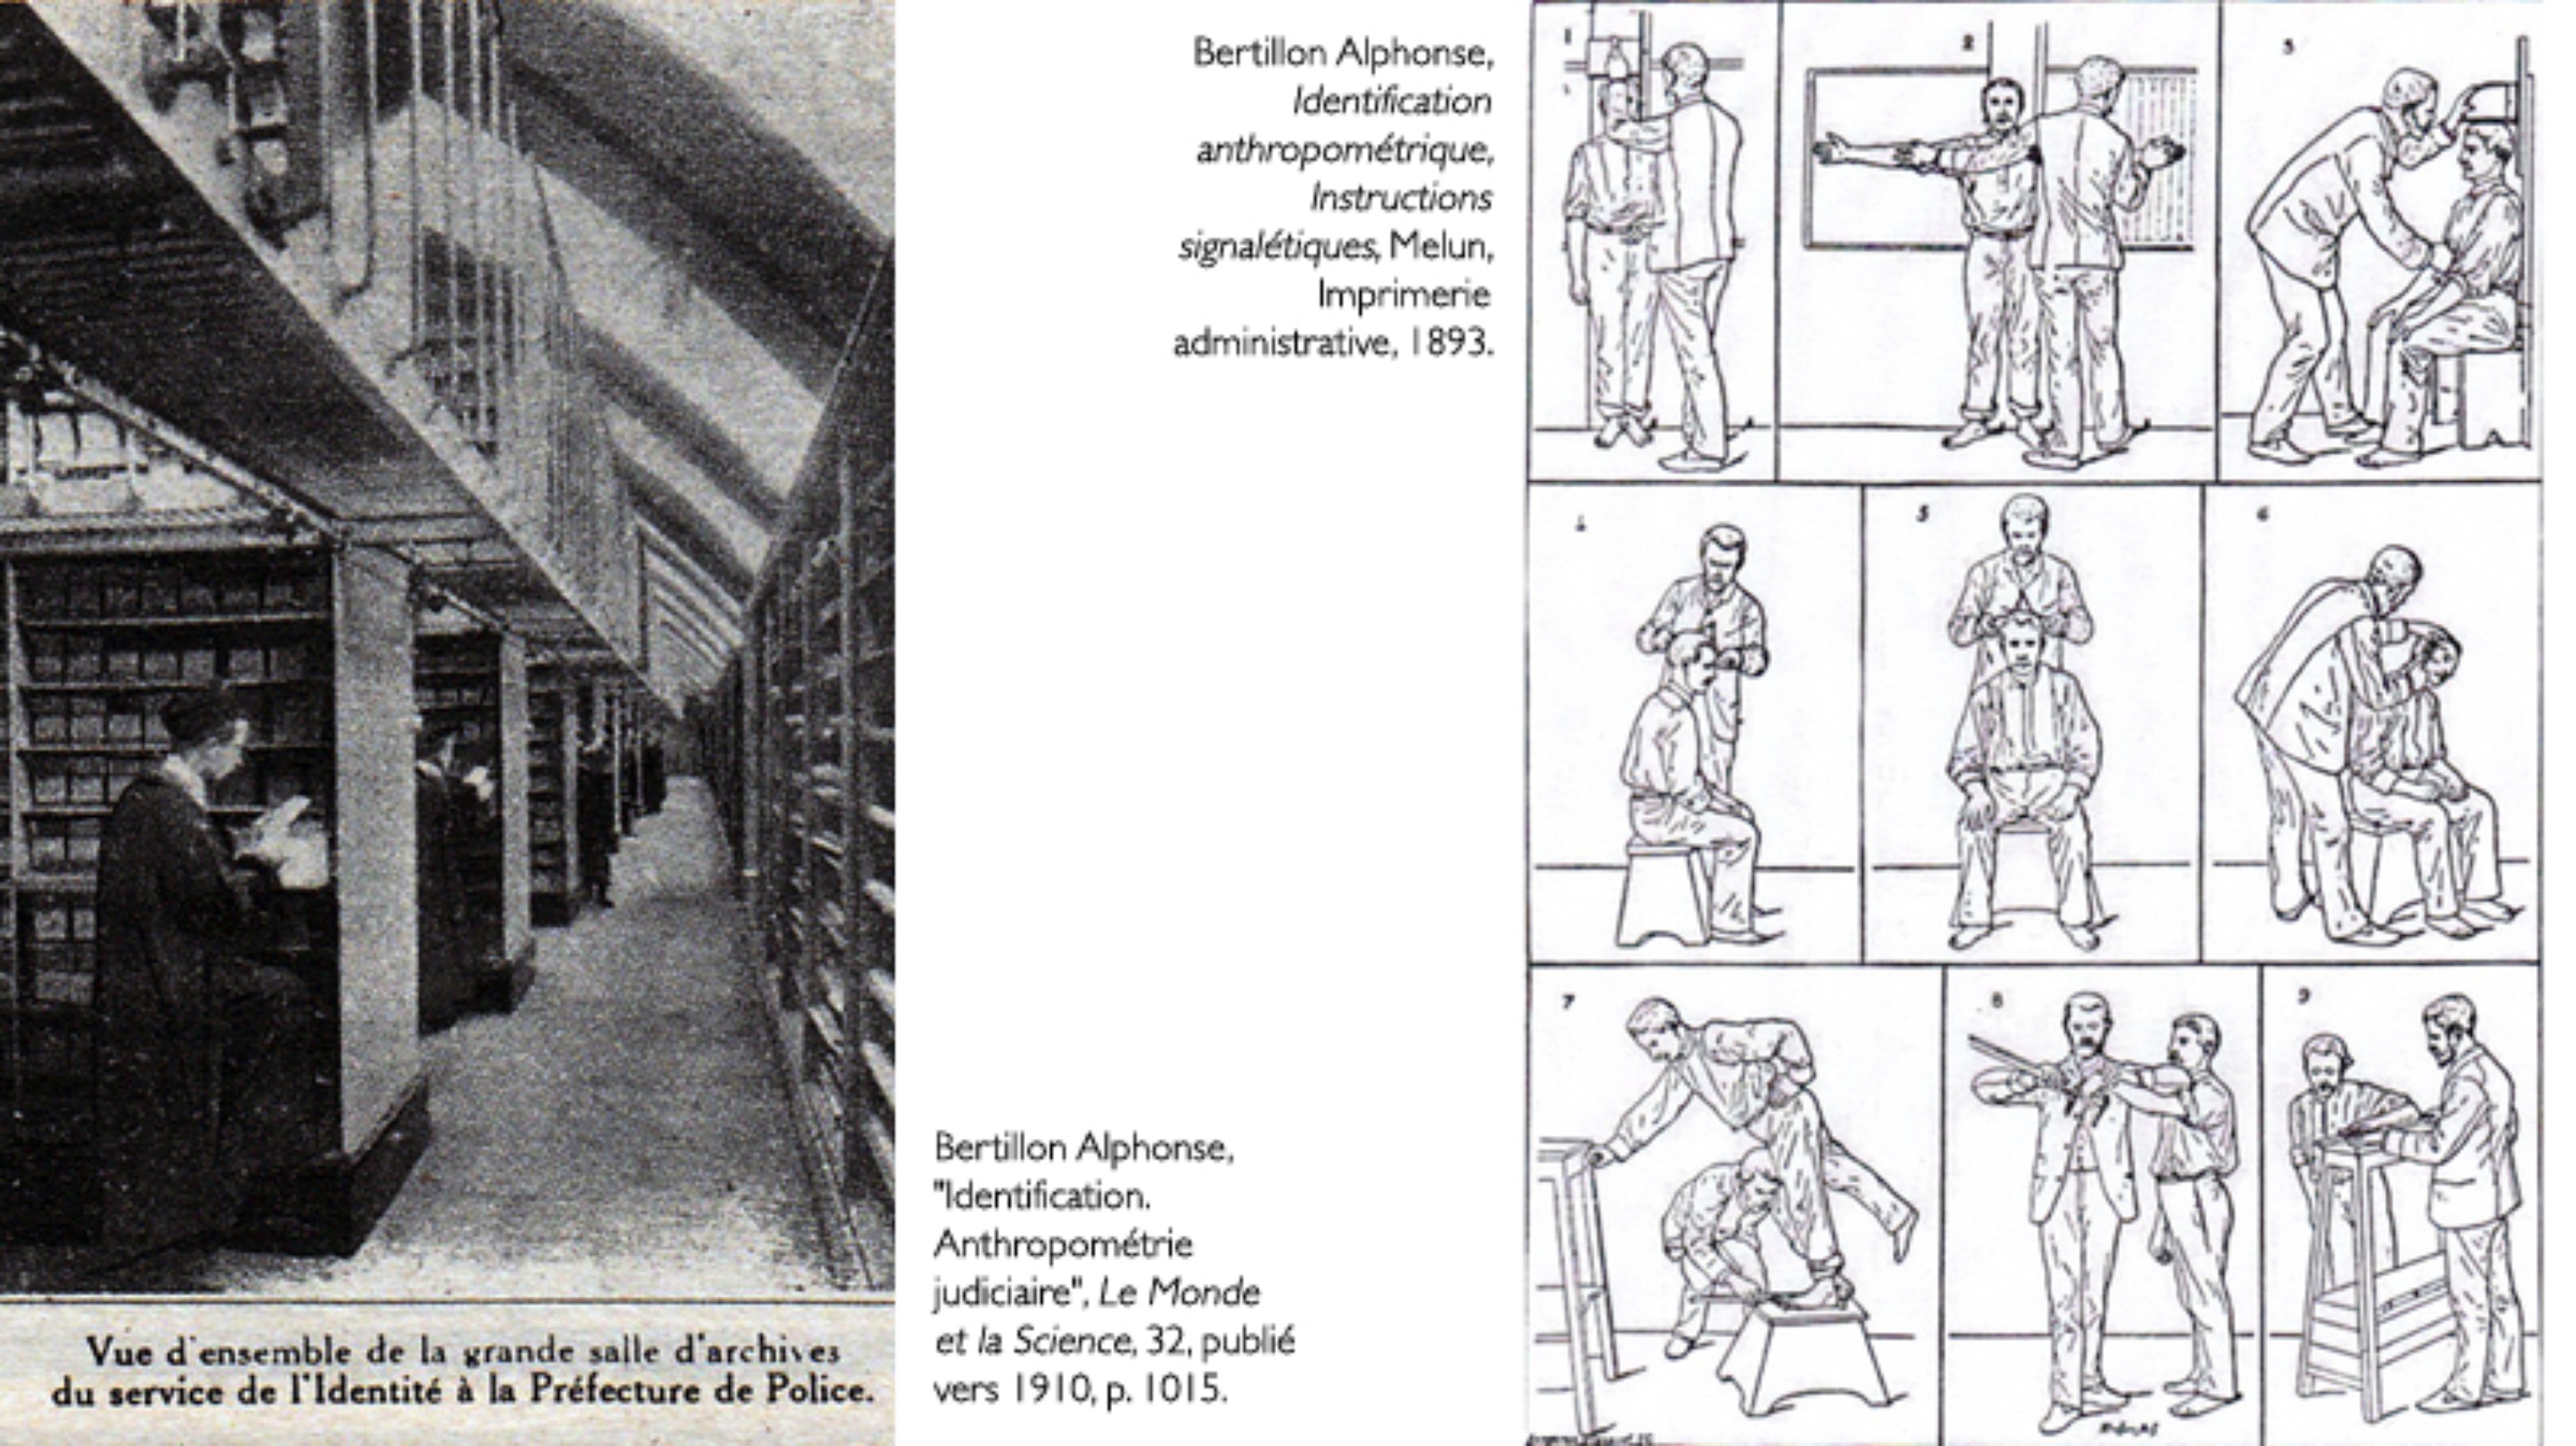 Bertillon Alphonse,
Identification
anthropométrique,
Instructions
signalétiques, Melun,
Imprimerie
administrative, 1893.
Bertillon Alphonse,
"Identification.
Anthropométrie
judiciaire", Le Monde
et la Science, 32, publié
vers 1910, p. 1015.
Vue d'ensemble de la grande salle d'archives
du service de l'Identité à la Préfecture de Police.
1
2
3
5
6
7
8
9